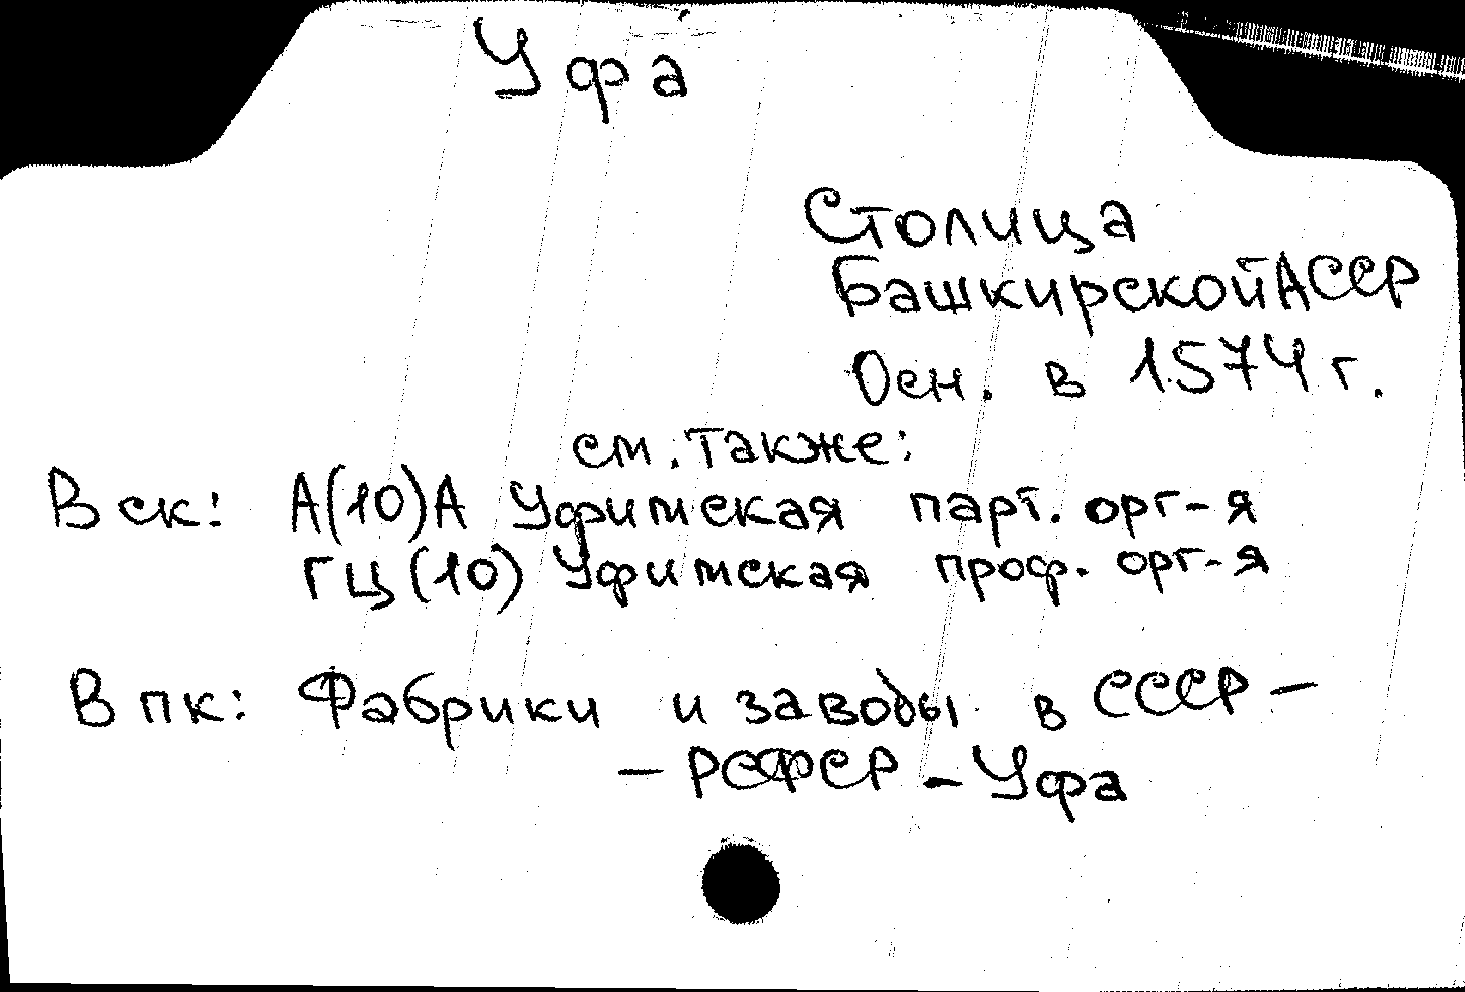 Уфа
Столица
Башкирской АССР
Осн. в 1574 г.
см. также:
В ск: А(10)А Уфимская парт. орг-я
ГЦ(10) Уфимская проф. орг-я
В пк: Фабрики и заводы в СССР –
– РСФСР – Уфа